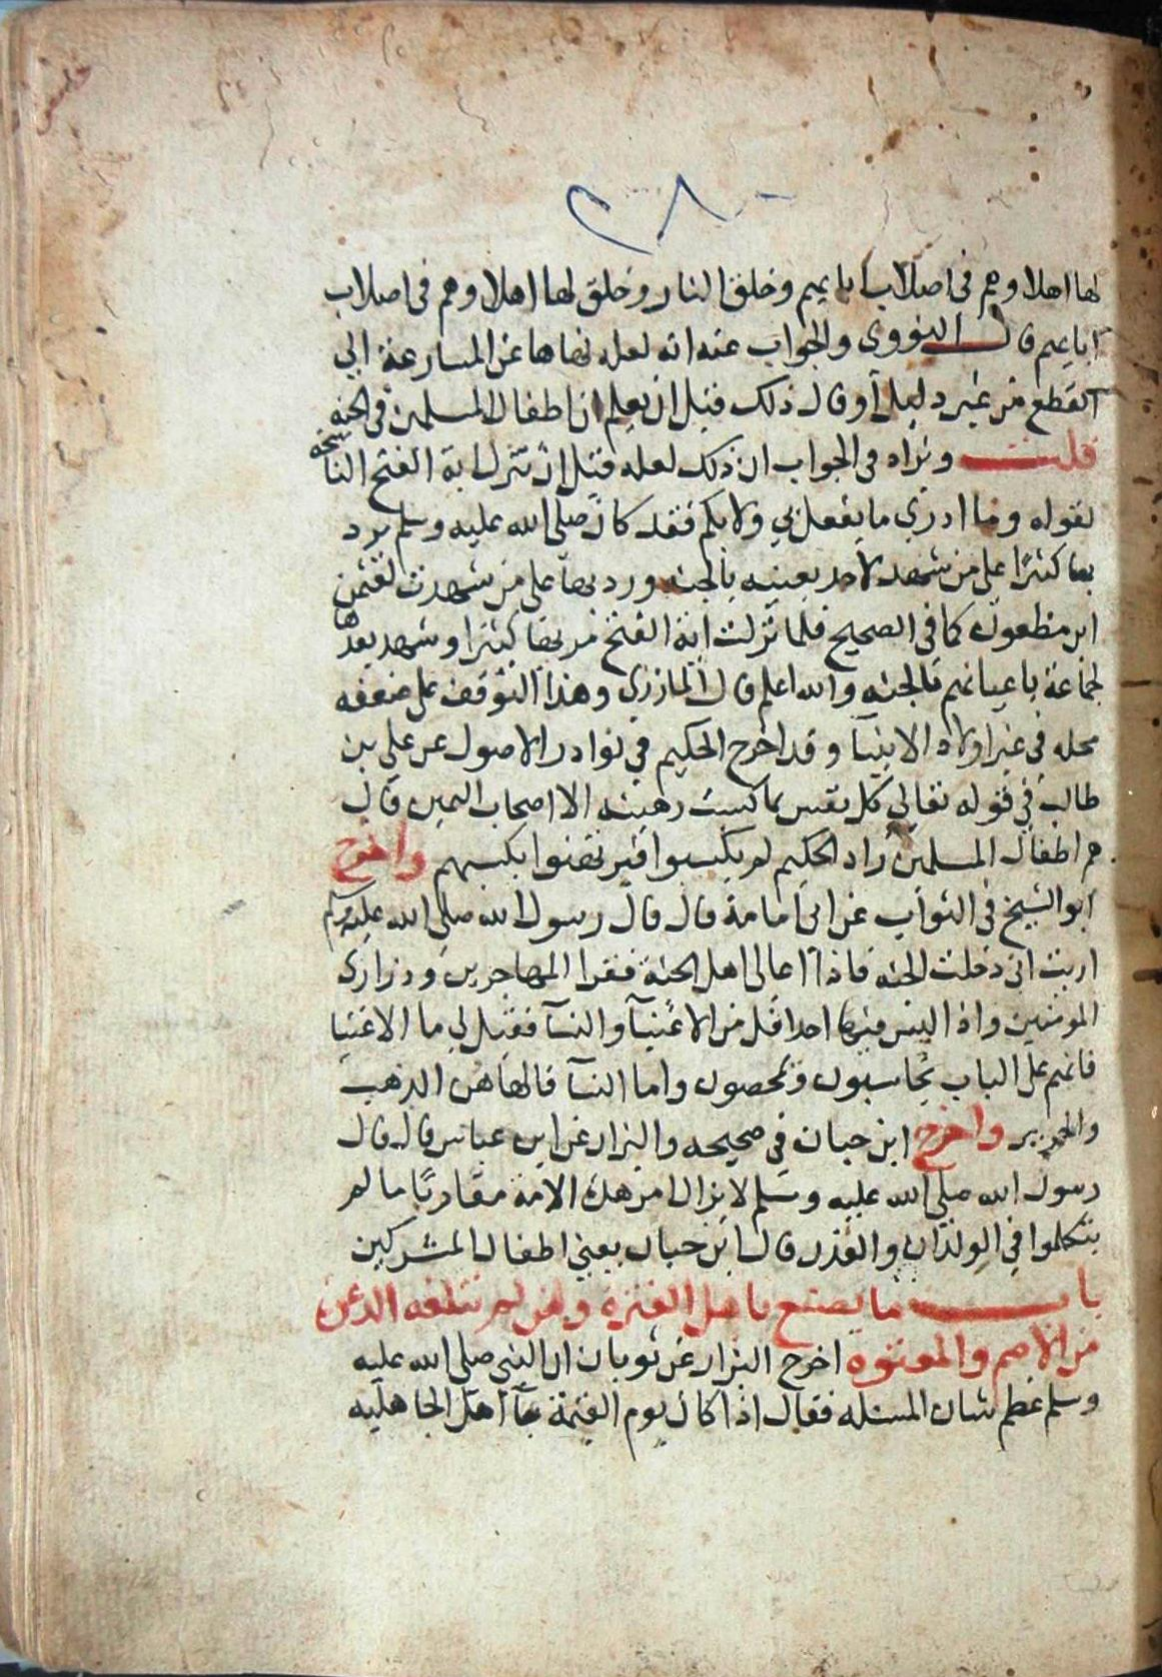 ٢٨٠
لها اهلا وهم فى اصلاب ابايهم وخلق النار وخلق لها اهلا وهم فى اصلاب
ابايهم قال النووى والجواب عنه انه لعله نهاها عن المسارعة الي
القطع من غير دليل أو قال ذلك قبل ان يعلم ان اطفال المسلمين فى الجنه
قلت ونراه فى الجواب ان ذلك لعله قبل ان تنزل اية الفتح الناسخه
لقوله وما ادري ما يفعل بي ولا بكم فقد كان صلى الله عليه وسلم يرد
بها كثيرًا على من شهد لاحد بعينه بالجنه ورد بها على من شهدت لعثمن
ابن مظعون كما فى الصحيح فلما نزلت اية الفتح بها كثيرا وشهد بعدها
لجماعة باعيانهم بالجنه والله اعلم قال المازري وهذا التوقف على ضعفه
محله فى غير اولاد الانبيآ وقد اخرج الحكيم في نوادر الاصول عن على بن
طالب في قوله تعالي كل نفس بما كسبت رهينه الا اصحاب اليمين قال
هم اطفال المسلمين زاد الحكيم لم يكسبوا فيرتهنوا بكسبهم واخرج
ابو الشيخ فى الثواب عن ابى امامة قال قال رسول الله صلى الله عليه وسلم
اريت انى دخلت الجنه فاذا اعالى اهل الجنة فقرا المهاجرين وذراري
المومنين واذا ليس فيها احد اقل من الاغنيآ والنسآ فقيل لي ما الاغنيا
فانهم على الباب يحاسبون ويمحصون واما النسآ فالهاهن الذهب
والحرير واخرج ابن حبان في صحيحه والبزار عن ابن عباس قال قال
رسول الله صلى الله عليه وسلم لا يزال امر هذه الامة مقاربًا ما لم
يتكلموا في الولدان والقدر قال ابن حبان يعني اطفال المشركين
باب ما يصنع باهل الفترة ومن لم تبلغه الدعوة
من الاصم والمعتوه اخرج البزار عن ثوبان ان النبي صلى الله عليه
وسلم عظم شان المسئله فقال اذا كان يوم القيمة جآ اهل الجاهليه